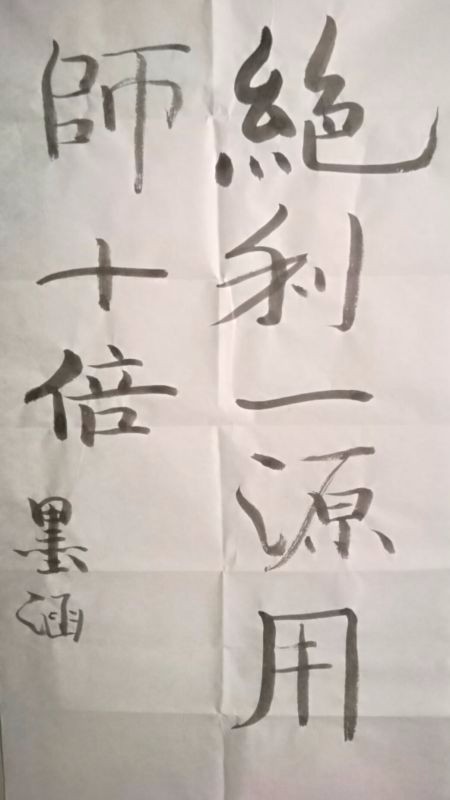 絕利一源用
師十倍
墨涵